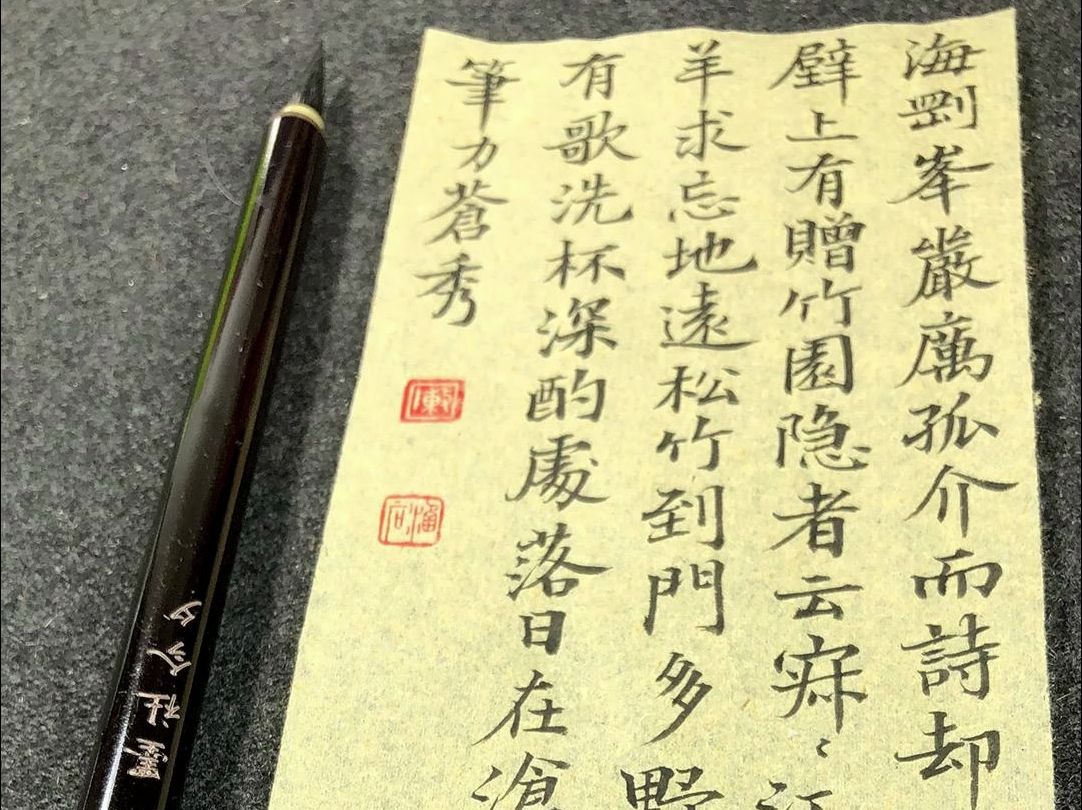 海剛峯嚴厲孤介而詩却
壁上有贈竹園隐者云寂〻江
羊求忘地遠松竹到門多野
有歌洗杯深酌處落日在滄
筆力蒼秀
今夕
墨社